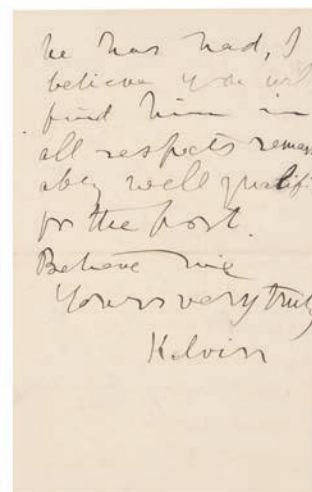 he has had, I
believe you wil
find him in
all respects remar
ably well qualifi
for the post.
Believe me
Yours very truly
Kelvin